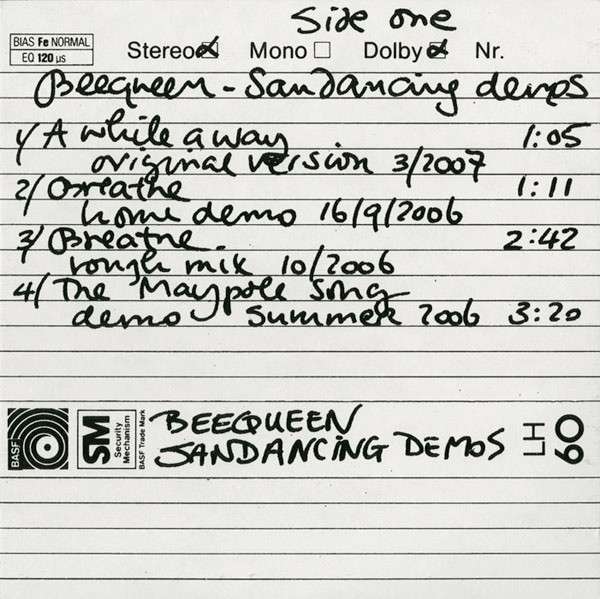 Side one
BIAS Fe NORMAL
EQ 120 µs
Stereo Mono Dolby Nr.
Beequeen - Sandancing demos
1/ A while away 1:05
original version 3/2007
2/ Breathe 1:11
home demo 16/9/2006
3/ Breathe. 2:42
rough mix 10/2006
4/ The Maypole Song
demo Summer 2006 3:20
BASF
SM
Security
Mechanism
BASF Trade Mark
BEEQUEEN
SANDANCING DEMOS
LH
60